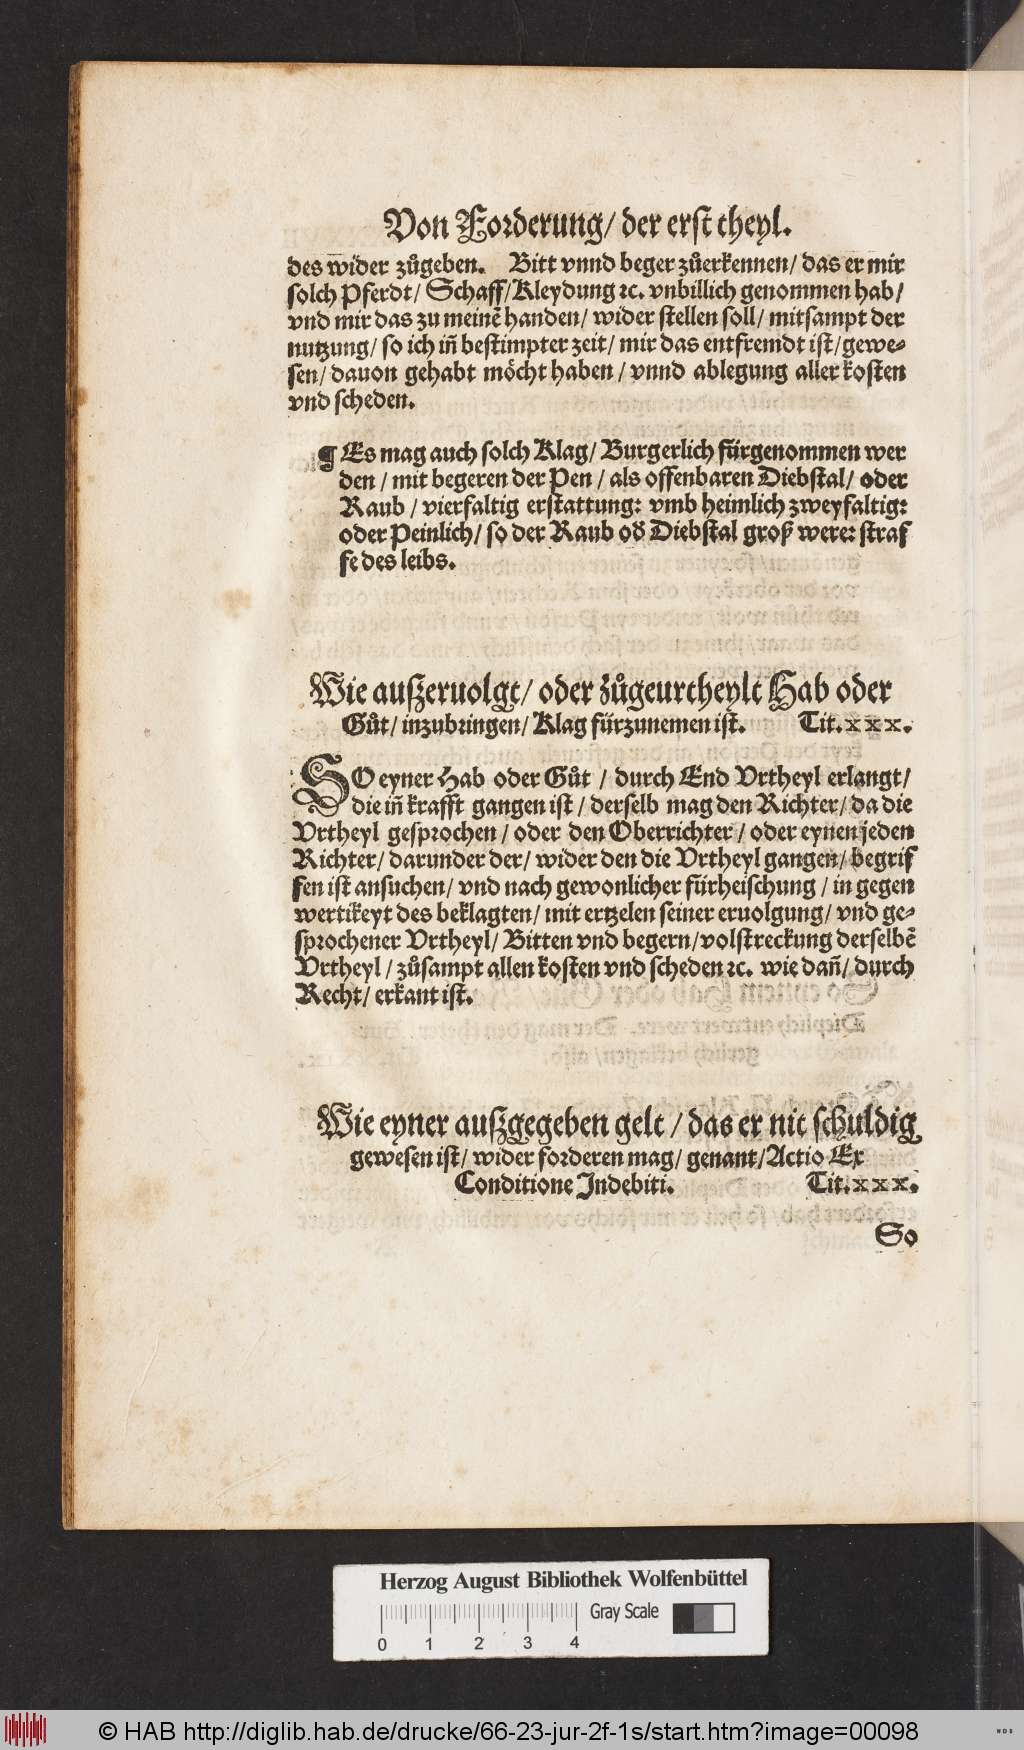 Von Forderung/ der erst theyl.
des wider zůgeben. Bitt vnnd beger zůerkennen/ das er mir
solch Pferdt/ Schaff/Kleydung ꝛc. vnbillich genommen hab/
vnd mir das zu meinē handen/ wider stellen soll/ mitsampt der
nutzung/ so ich iñ bestimpter zeit/ mir das entfremdt ist/gewe⸗
sen/ dauon gehabt möcht haben/ vnnd ablegung aller kosten
vnd scheden.
¶ Es mag auch solch Klag/ Burgerlich fürgenommen wer
den/ mit begeren der Pen/ als offenbaren Diebstal/ oder
Raub/ vierfaltig erstattung: vmb heimlich zweyfaltig:
oder Peinlich/ so der Raub oď Diebstal groß were: straf
fe des leibs.
Wie außeruolgt/ oder zůgeurtheylt Hab oder
Gůt/ inzubringen/ Klag fürzunemen ist. Tit. xxx.
SO eyner Hab oder Gůt/ durch End Vrtheyl erlangt/
die iñ krafft gangen ist/ derselb mag den Richter/ da die
Vrtheyl gesprochen/ oder den Oberrichter/ oder eynen jeden
Richter/ darunder der/ wider den die Vrtheyl gangen/ begrif
fen ist ansuchen/ vnd nach gewonlicher fürheischung/ in gegen
wertikeyt des beklagten/ mit ertzelen seiner eruolgung/ vnd ge⸗
sprochener Vrtheyl/ Bitten vnd begern/volstreckung derselbē
Vrtheyl/ zůsampt allen kosten vnd scheden ꝛc. wie dañ/ durch
Recht/ erkant ist.
Wie eyner außgegeben gelt/ das er nit schuldig
gewesen ist/ wider forderen mag/ genant/Actio Ex
Conditione Indebiti. Tit. xxx.
So
Herzog August Bibliothek Wolfenbüttel
Gray Scale
0 1 2 3 4
© HAB http://diglib.hab.de/drucke/66-23-jur-2f-1s/start.htm?image=00098
WDB